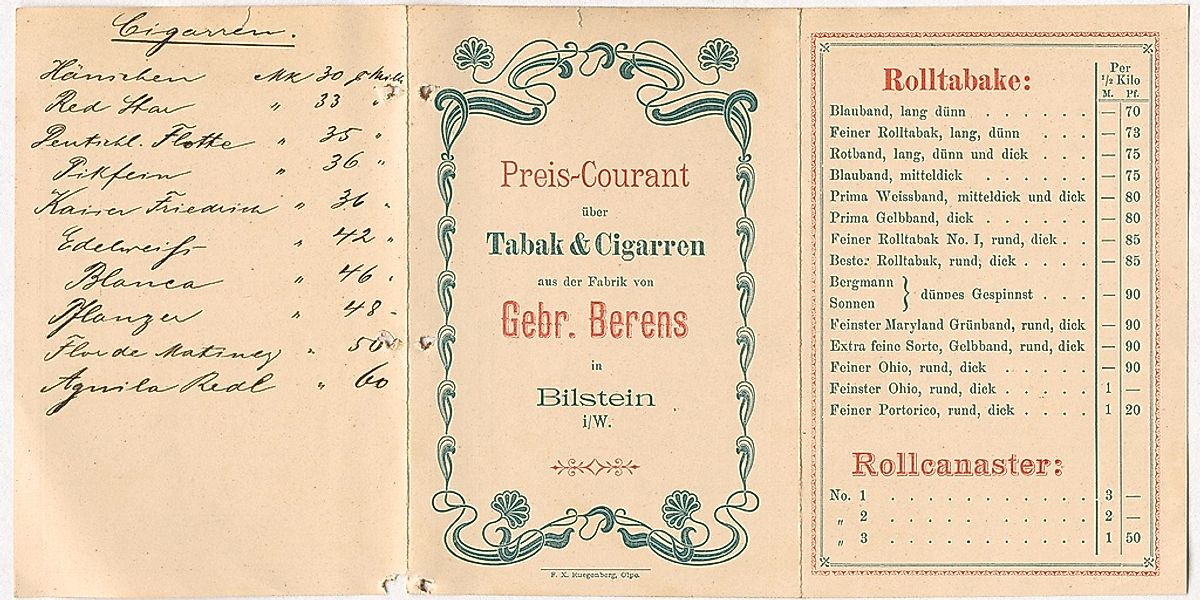 Cigarren.
Hänschen Mk 30 p Mille
Red Star " 33 "
Deutschl. Flotte " 35 "
Pikfein " 36 "
Kaiser Friedrich " 36 "
Edelweiß " 42 "
Blanca " 46 "
Pflanzer " 48 "
Flor de " 50
Aguila Real " 60
Preis-Courant
über
Tabak & Cigarren
aus der Fabrik von
Gebr. Berens
in
Bilstein
i/W.
F. X. Ruegenberg, Olpe.
Rolltabake:
Per
1/2 Kilo
M. Pf.
Blauband, lang dünn . . . . . . . — 70
Feiner Rolltabak, lang, dünn . . . . — 73
Rotband, lang, dünn und dick . . . — 75
Blauband, mitteldick . . . . . . — 75
Prima Weissband, mitteldick und dick — 80
Prima Gelbband, dick . . . . . . — 80
Feiner Rolltabak No. I, rund, dick . . — 85
Bester Rolltabak, rund, dick . . . . — 85
Bergmann
Sonnen } dünnes Gespinnst . . . — 90
Feinster Maryland Grünband, rund, dick — 90
Extra feine Sorte, Gelbband, rund, dick — 90
Feiner Ohio, rund, dick . . . . . — 90
Feinster Ohio, rund, dick . . . . . 1 —
Feiner Portorico, rund, dick . . . . 1 20
Rollcanaster:
No. 1 . . . . . . . . . . . 3 —
„ 2 . . . . . . . . . . . 2 —
„ 3 . . . . . . . . . . . 1 50